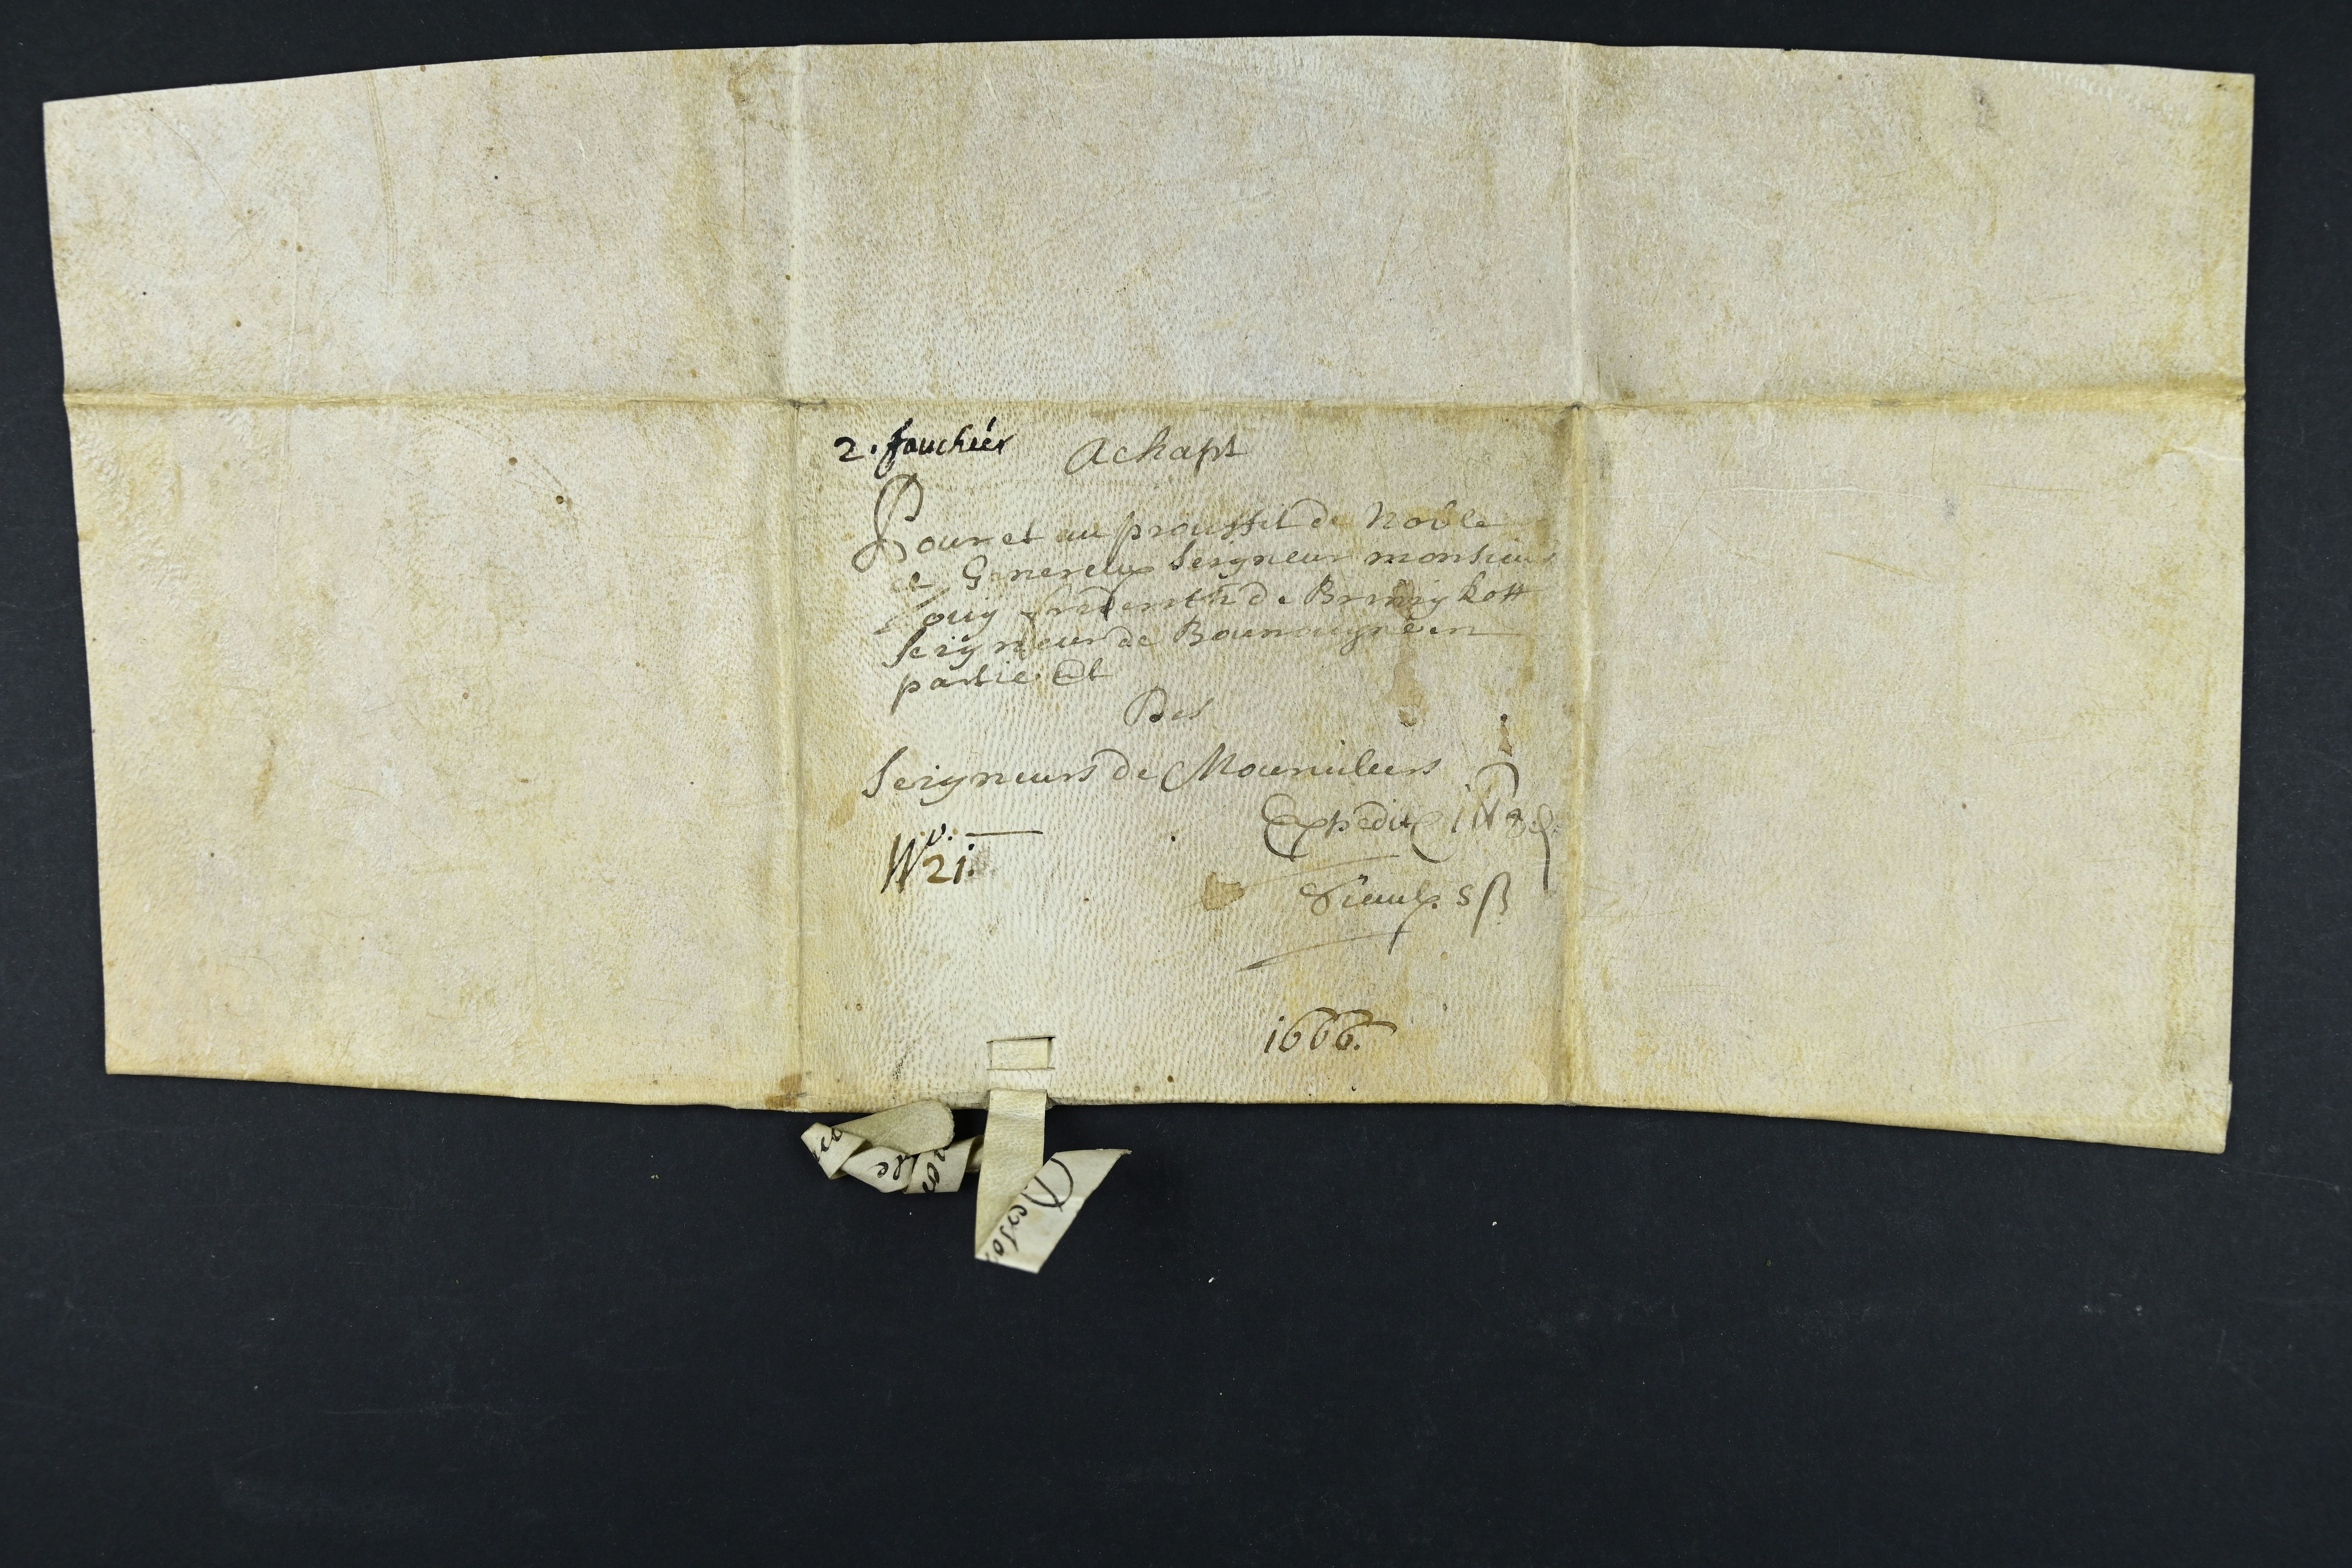 2. fauchées Achapt
Pour et au prouffit de Noble
et Genereux Seigneur monsieur
Louy friderich de Brinighoff
Seigneur de Bournoigne en
partie Et
Des
Seigneurs de Mouruileers
Expedite
N°. 21.
1666.